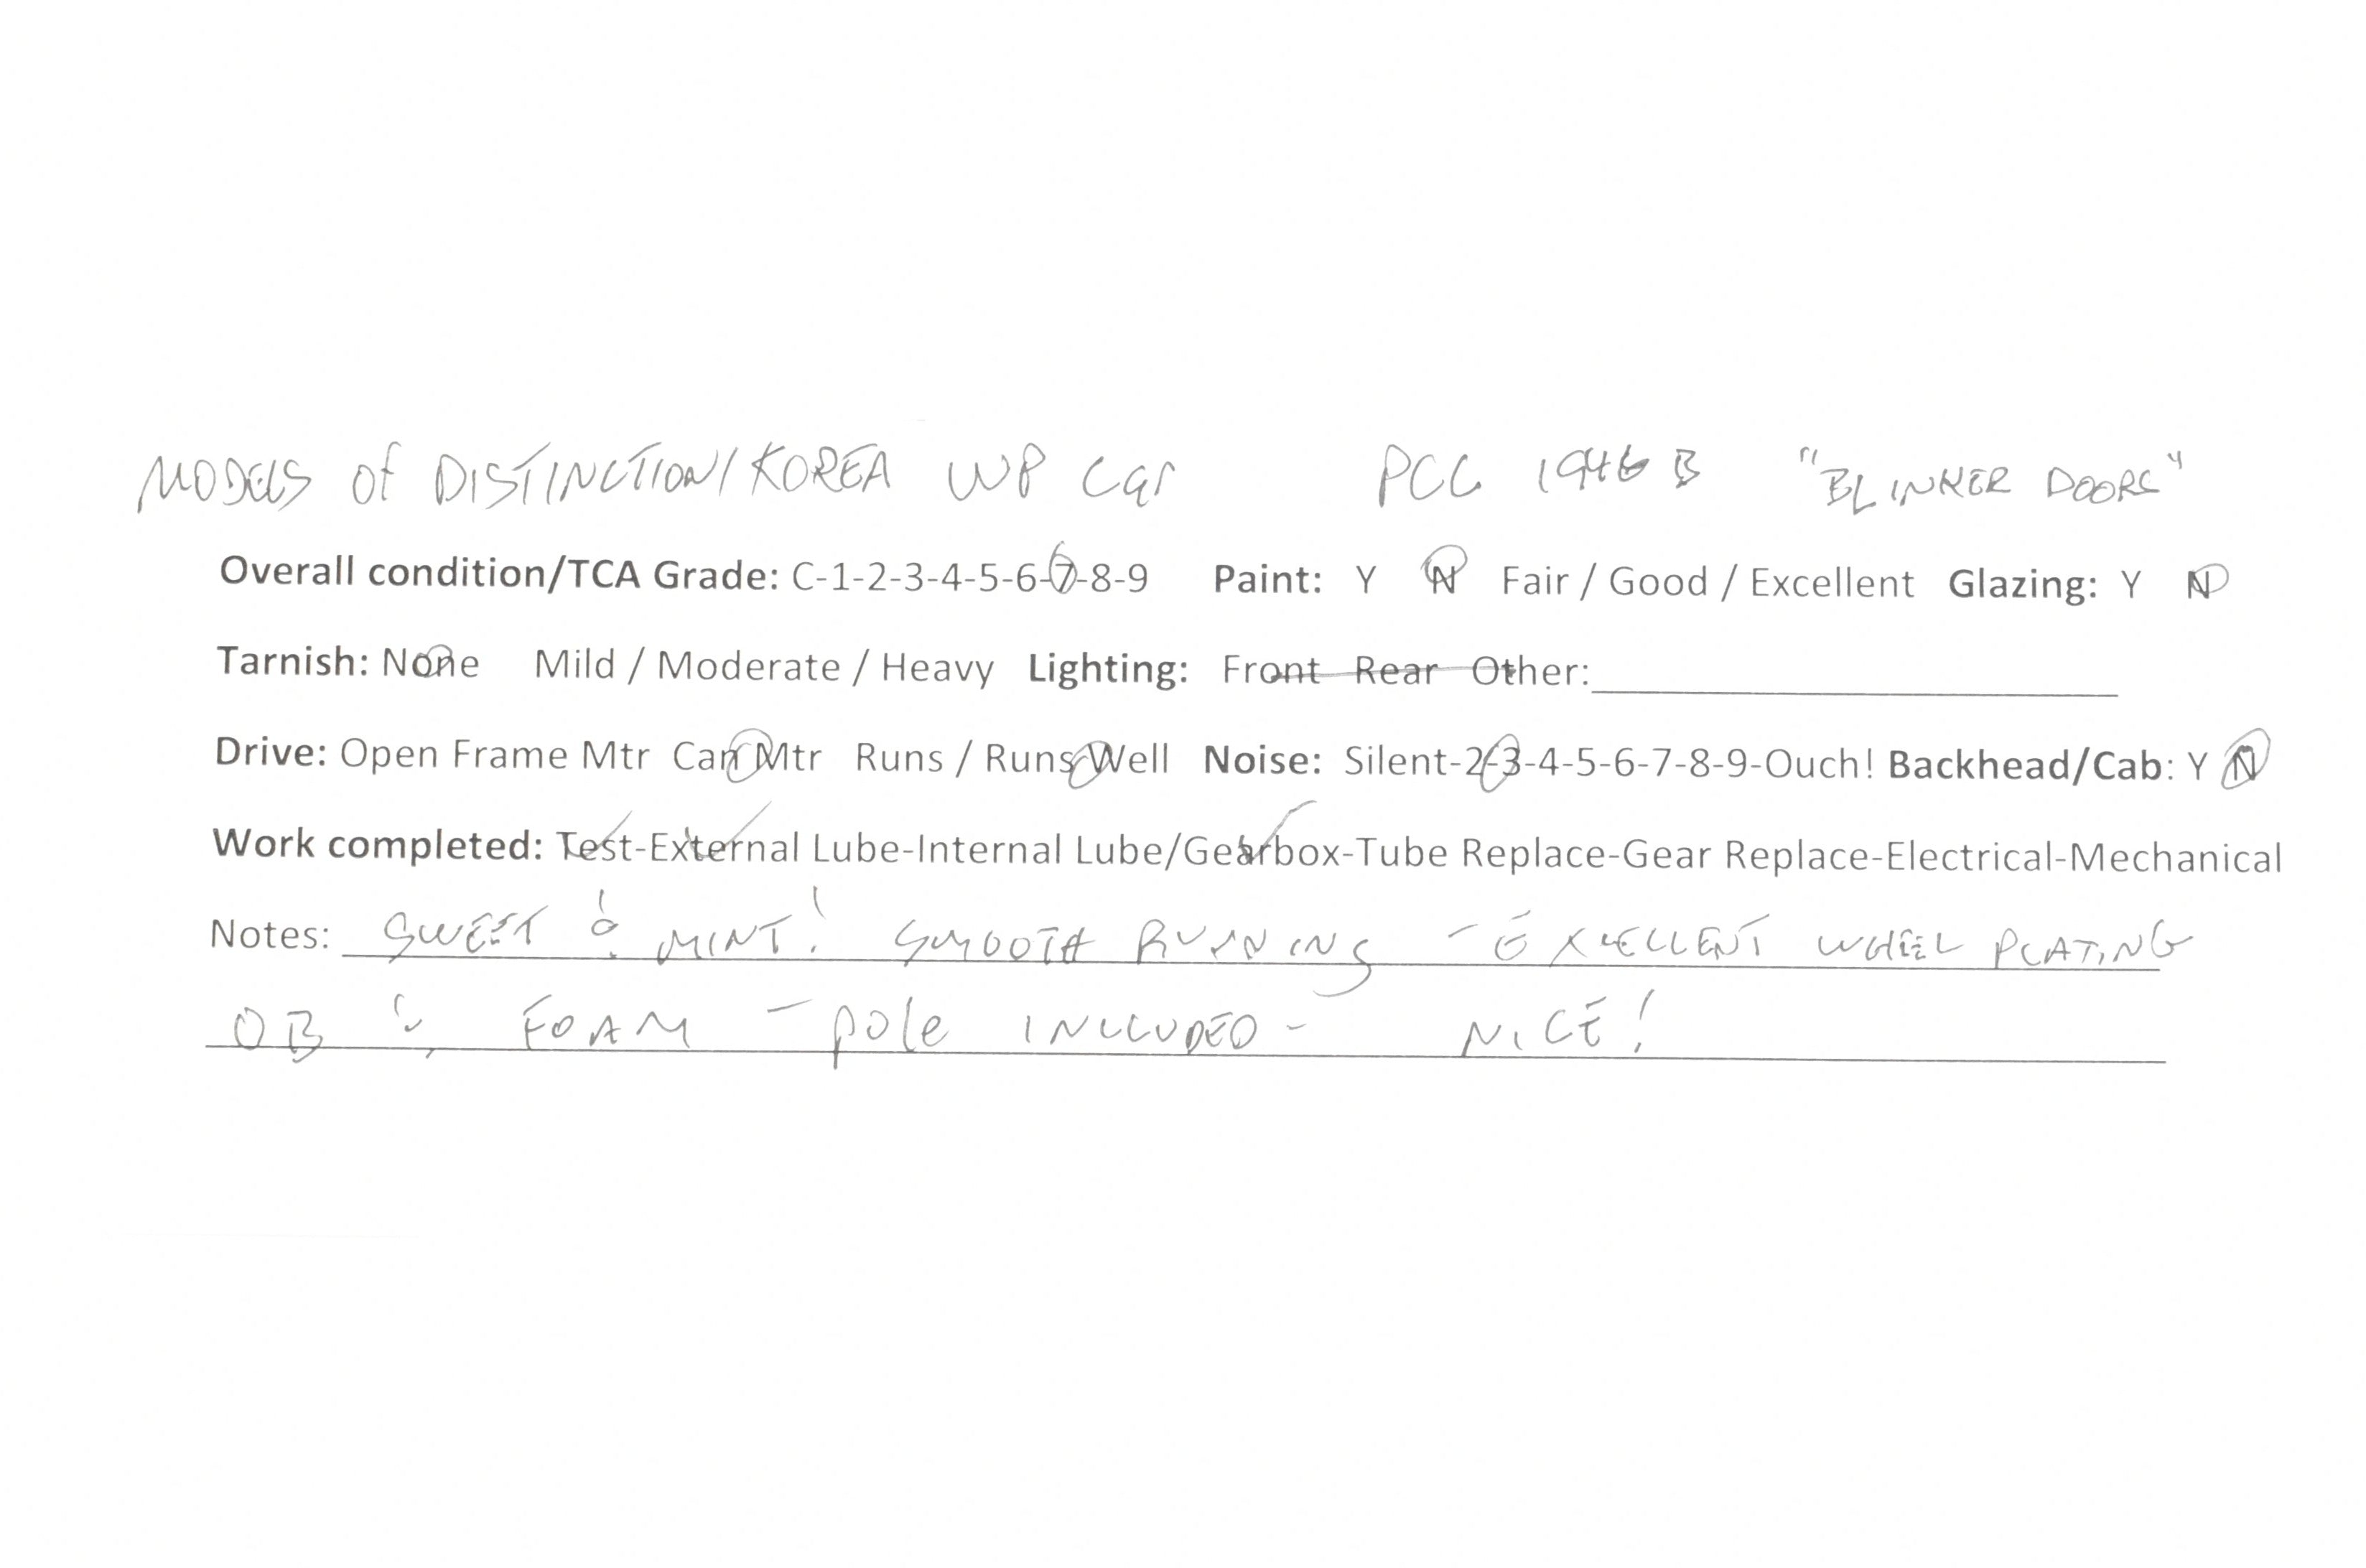 MODELS Of DISTINCTION/KOREA WP Car PCC 1946 B "BLINKER DOORS"
Overall condition/TCA Grade: C-1-2-3-4-5-6-7-8-9 Paint: Y N Fair / Good / Excellent Glazing: Y N
Tarnish: None Mild / Moderate / Heavy Lighting: Front Rear Other:
Drive: Open Frame Mtr Can Mtr Runs / Runs Well Noise: Silent-2-3-4-5-6-7-8-9-Ouch! Backhead/Cab: Y N
Work completed: Test-External Lube-Internal Lube/Gearbox-Tube Replace-Gear Replace-Electrical-Mechanical
Notes: SWEET & MINT! SMOOTH RUNNING - EXCELLENT WHEEL PLATING
OB & FOAM - pole INCLUDED - NICE!